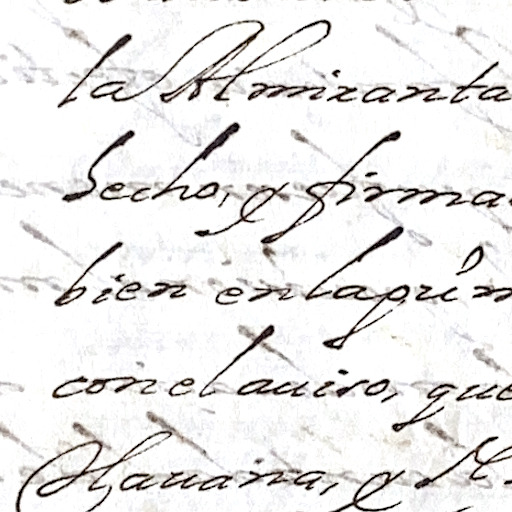 la Almiranta
hecho, y firma
bien en la
con el auiso, que
Hauana, y